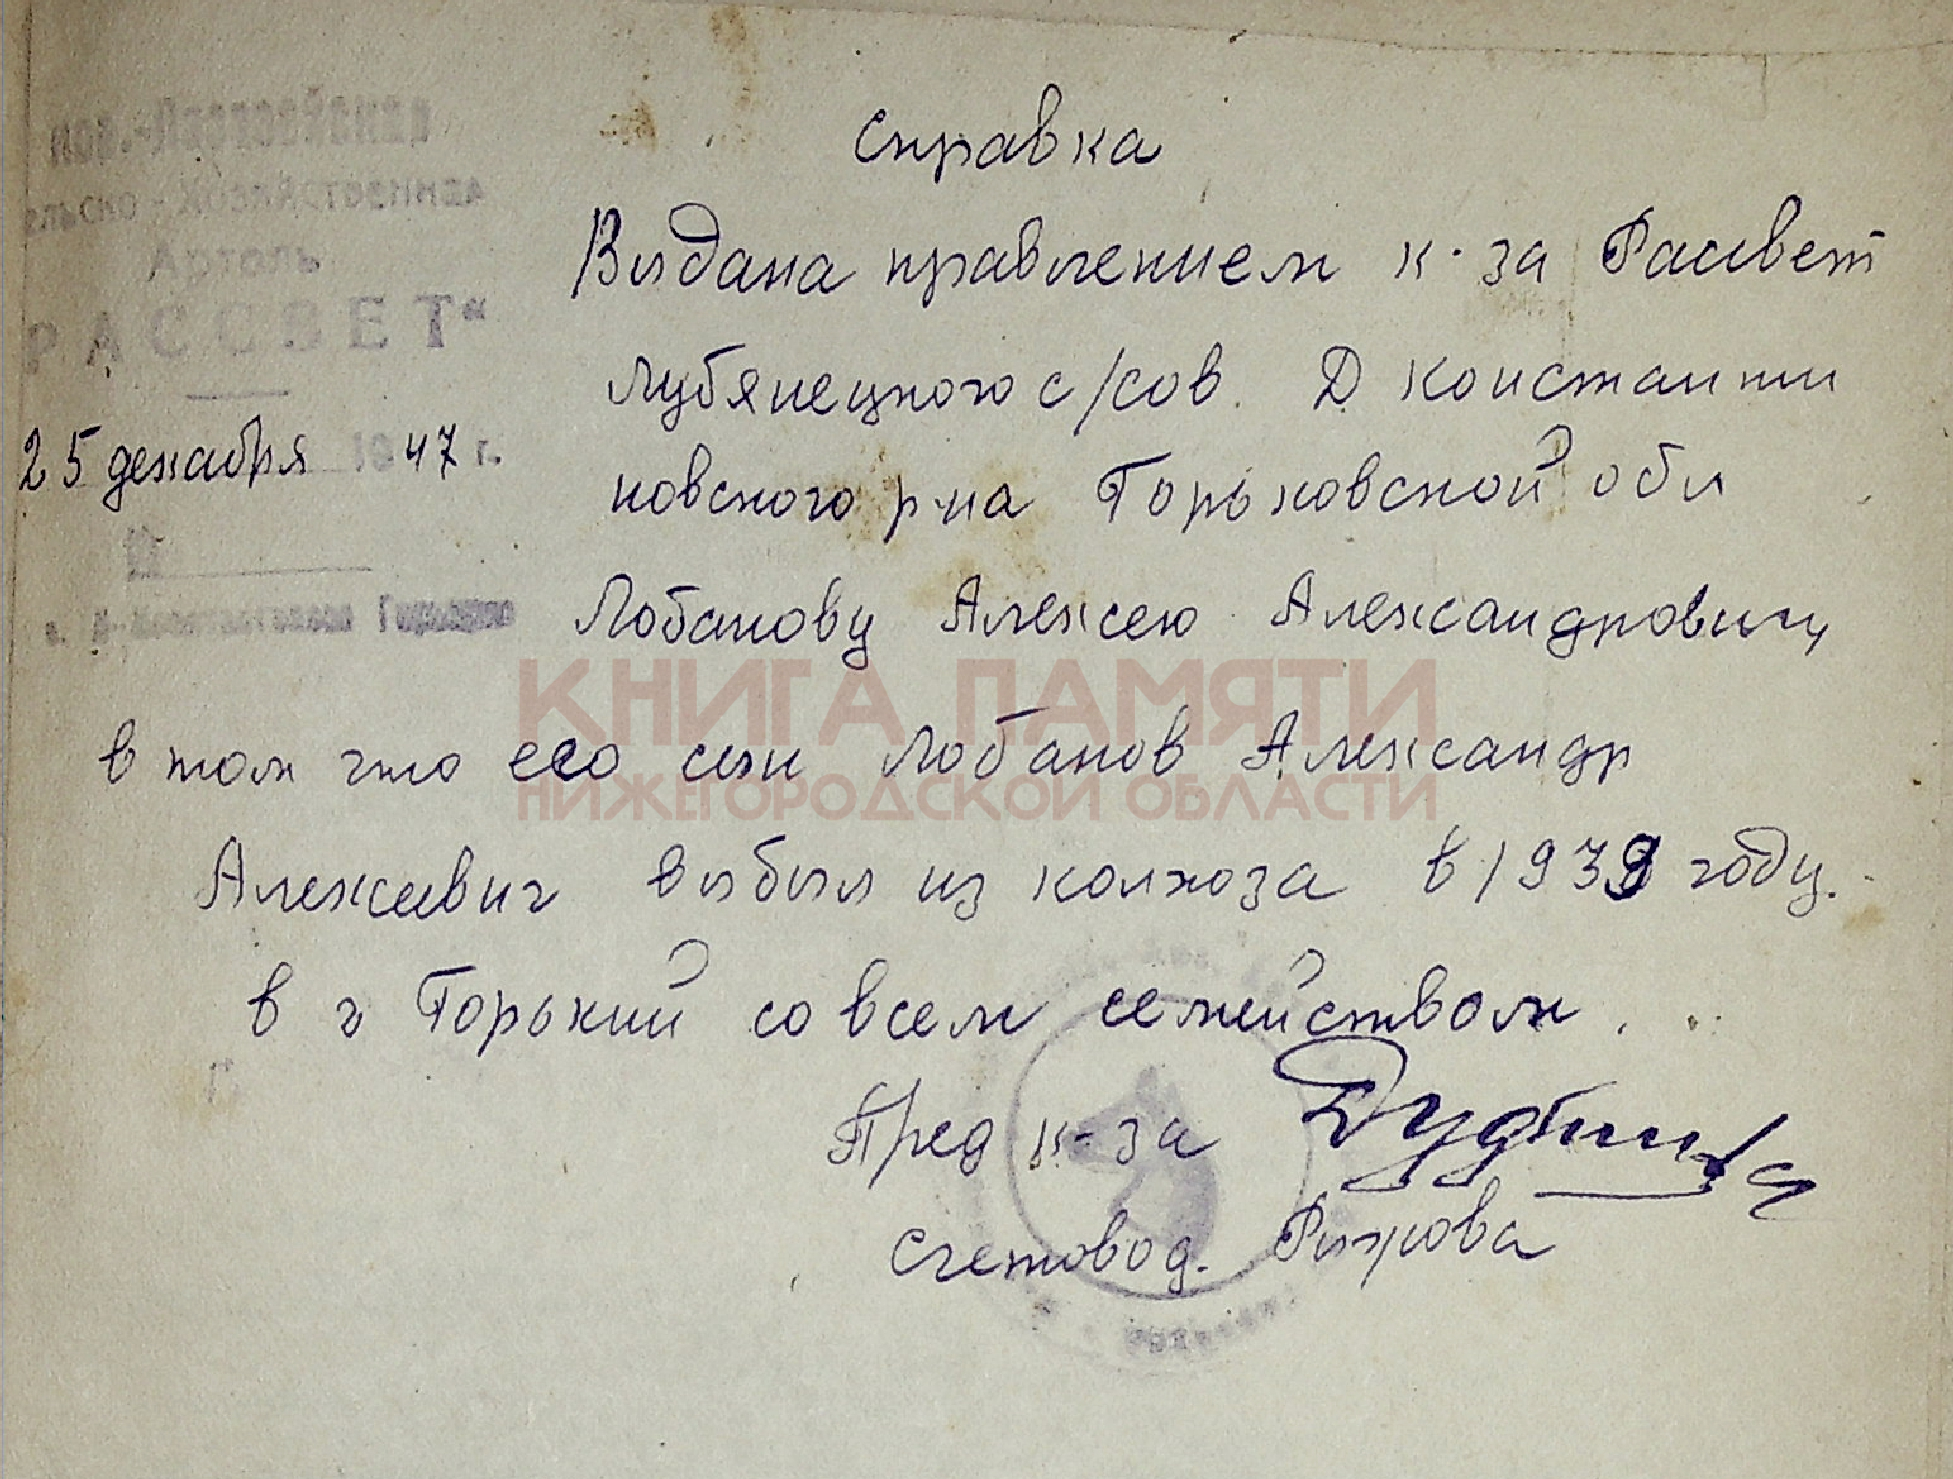 Справка
ельско-Хозяйственная
Артель
РАССВЕТ"
25 декабря 1947 г.
Выдана правлением к-за Рассвет
Лубянецкого с/сов. Д Константи
новского р-на Горьковской обл
Лобанову Алексею Александровичу
в том что его сын Лобанов Александр
Алексеевич выбыл из колхоза в 1939 году.
в г Горький со всем семейством.
Пред к-за
Счетовод. Рыжова
КНИГА ПАМЯТИ
НИЖЕГОРОДСКОЙ ОБЛАСТИ